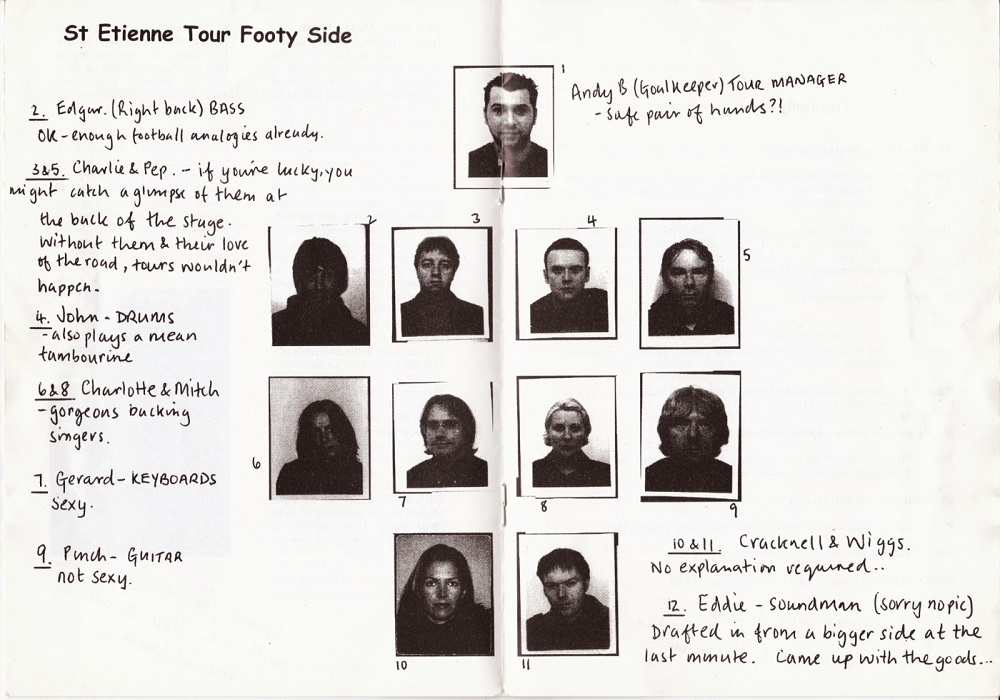 St Etienne Tour Footy Side
1
Andy B (Goalkeeper) Tour MANAGER
- safe pair of hands?!
2. Edgar. (Right back) BASS
OK - enough football analogies already.
3&5. Charlie & Pep. - if you're lucky, you
might catch a glimpse of them at
the back of the stage.
Without them & their love
of the road, tours wouldn't
happen.
4. John - DRUMS
- also plays a mean
tambourine
6&8 Charlotte & Mitch
- gorgeous backing
singers.
7. Gerard - KEYBOARDS
Sexy.
9. Pinch - GUITAR
not sexy.
2
3
4
5
6
7
8
9
10
11
10 & 11. Cracknell & Wiggs.
No explanation required..
12. Eddie - Soundman (sorry no pic)
Drafted in from a bigger side at the
last minute. Came up with the goods...